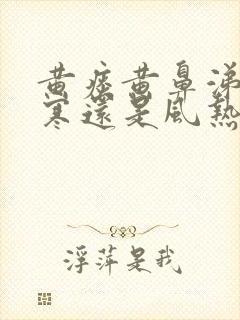 黄痰黄鼻涕
寒還是風熱
浮萍是我